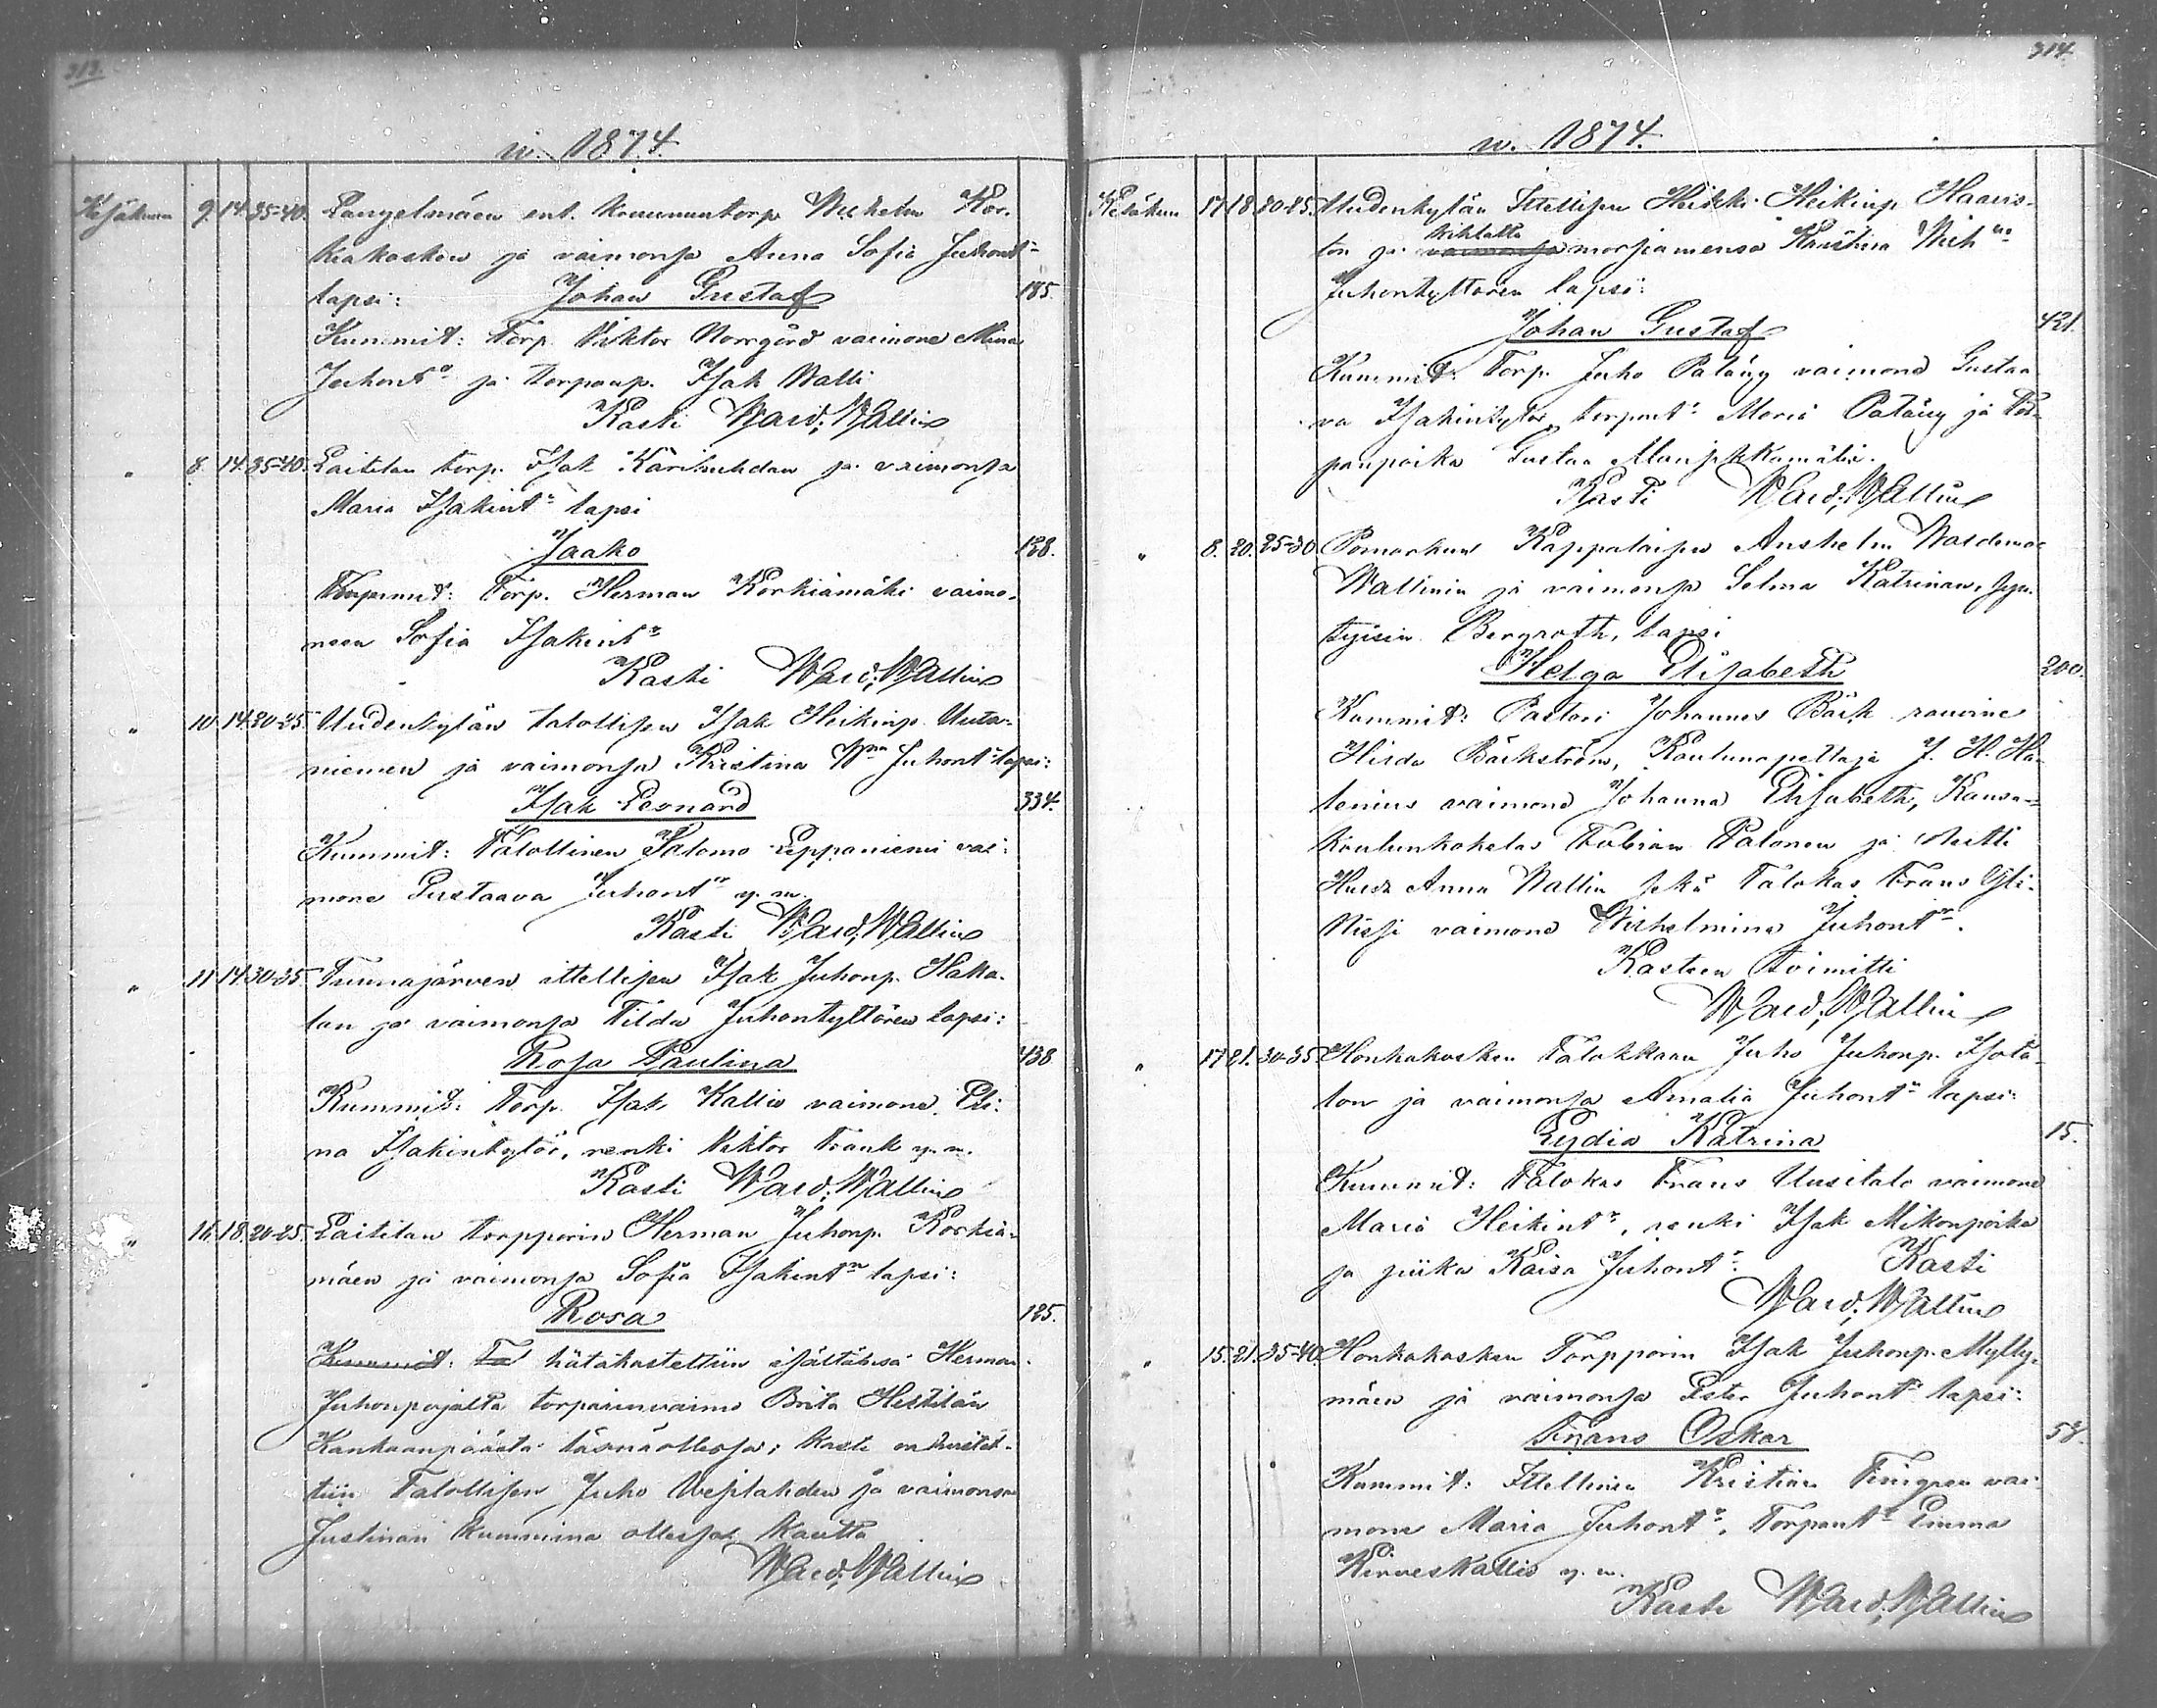 313.
v. 1874.
Kesäkuun 9. 14. 35-40. Langelmäen ent. kruununtorp. Wilhelm Kor-
kiakosken ja vaimonsa Anna Sofia Juhont:n
lapsi: Johan Gustaf 185.
Kummit: Torp. Viktor Norrgård vaimone Miina
Juhont:r ja torpanp. Isak Walli
Kasti Ward. Wallin
" 8. 14. 35-40. Laitilan torp. Isak Karihuhdan ja vaimonsa
Maria Isakint:n lapsi
Jaako 128.
Kummit: Torp. Herman Korkiamäki vaimo-
neen Sofia Isakint:r
Kasti Ward. Wallin
" 10. 14. 20-25. Uudenkylän talollisen Isak Heikinp. Uuta-
niemen ja vaimonsa Kristina W:na Juhont:n lapsi:
Isak Leonard 334.
Kummit: Talollinen Salomo Leppäniemi vai-
mone Gustaava Juhont:r y. m.
Kasti Ward. Wallin
" 11. 14. 30-35. Tuunajärven ittellisen Isak Juhonp. Haka-
lan ja vaimonsa Tilda Juhontyttären lapsi:
Rosa Paulina 438.
Kummit: Torp. Isak Kallio vaimone Eli-
na Isakintytär, renki Viktor Frank y. m.
Kasti Ward. Wallin
" 16. 18. 20-25. Laitilan torpparin Herman Juhonp. Korkia-
mäen ja vaimonsa Sofia Isakint:n lapsi:
Rosa 125.
Kummit: To hätäkastettiin isältänsä Herman
Juhonpojalta torparinvaimo Brita Heittilän
Kankaanpäästä läsnäollessa; kaste vahvistet-
tiin Talollisen Juho Vesilahden ja vaimonsa
Justinan kummina ollessa kautta
Ward. Wallin
314.
v. 1874.
Kesäkuun 17. 18. 20-25. Uudenkylän Ittellisen Heikki Heikinp. Haavis-
ton ja vaimonsa kihlattu morsiamensa Kristina Wilh:na
Juhontyttären lapsi:
Johan Gustaf 421.
Kummit: Torp. Juho Palang vaimone Gustaa-
va Isakintytär, torpant:r Maria Palang ja Tor-
panpoika Gustaa
Kasti Ward. Wallin
" 8. 20. 25-30. Pomarkun Kappalaisen Anshelm Waldemar
Wallinin ja vaimonsa Selma Katrinan, syn-
tyisin Bergroth, lapsi
Helga Elisabeth 200.
Kummit: Pastori Johannes Bäck rouvine
Hilda Bäckström, Koulunopettaja J. H. Ha-
lenius vaimone Johanna Elisabeth, Kansa-
koulunkokelas Fabian Palonen ja
Anna Wallin sekä Talokas Frans Yli-
Nissi vaimone Wilhelmina Juhont:r.
Kasteen toimitti
Ward. Wallin
" 17. 21. 30-35. Honkakosken Talokkaan Juho Juhonp. Isota-
lon ja vaimonsa Amalia Juhont:n lapsi:
Lydia Katrina 15.
Kummit: Talokas Frans Uusitalo vaimone
Maria Heikint:r, renki Isak Mikonpoika
ja piika Kaisa Juhont:r. Kasti
Ward. Wallin
" 15. 21. 35-40. Honkakosken Torpparin Isak Juhonp. Mylly-
mäen ja vaimonsa Ester Juhont:n lapsi:
Frans Oskar 58.
Kummit: Ittellinen Kristian Finngren vai-
mone Maria Juhont:r, Torpant:r Emma
Kirveskallio y. m.
Kasti Ward. Wallin